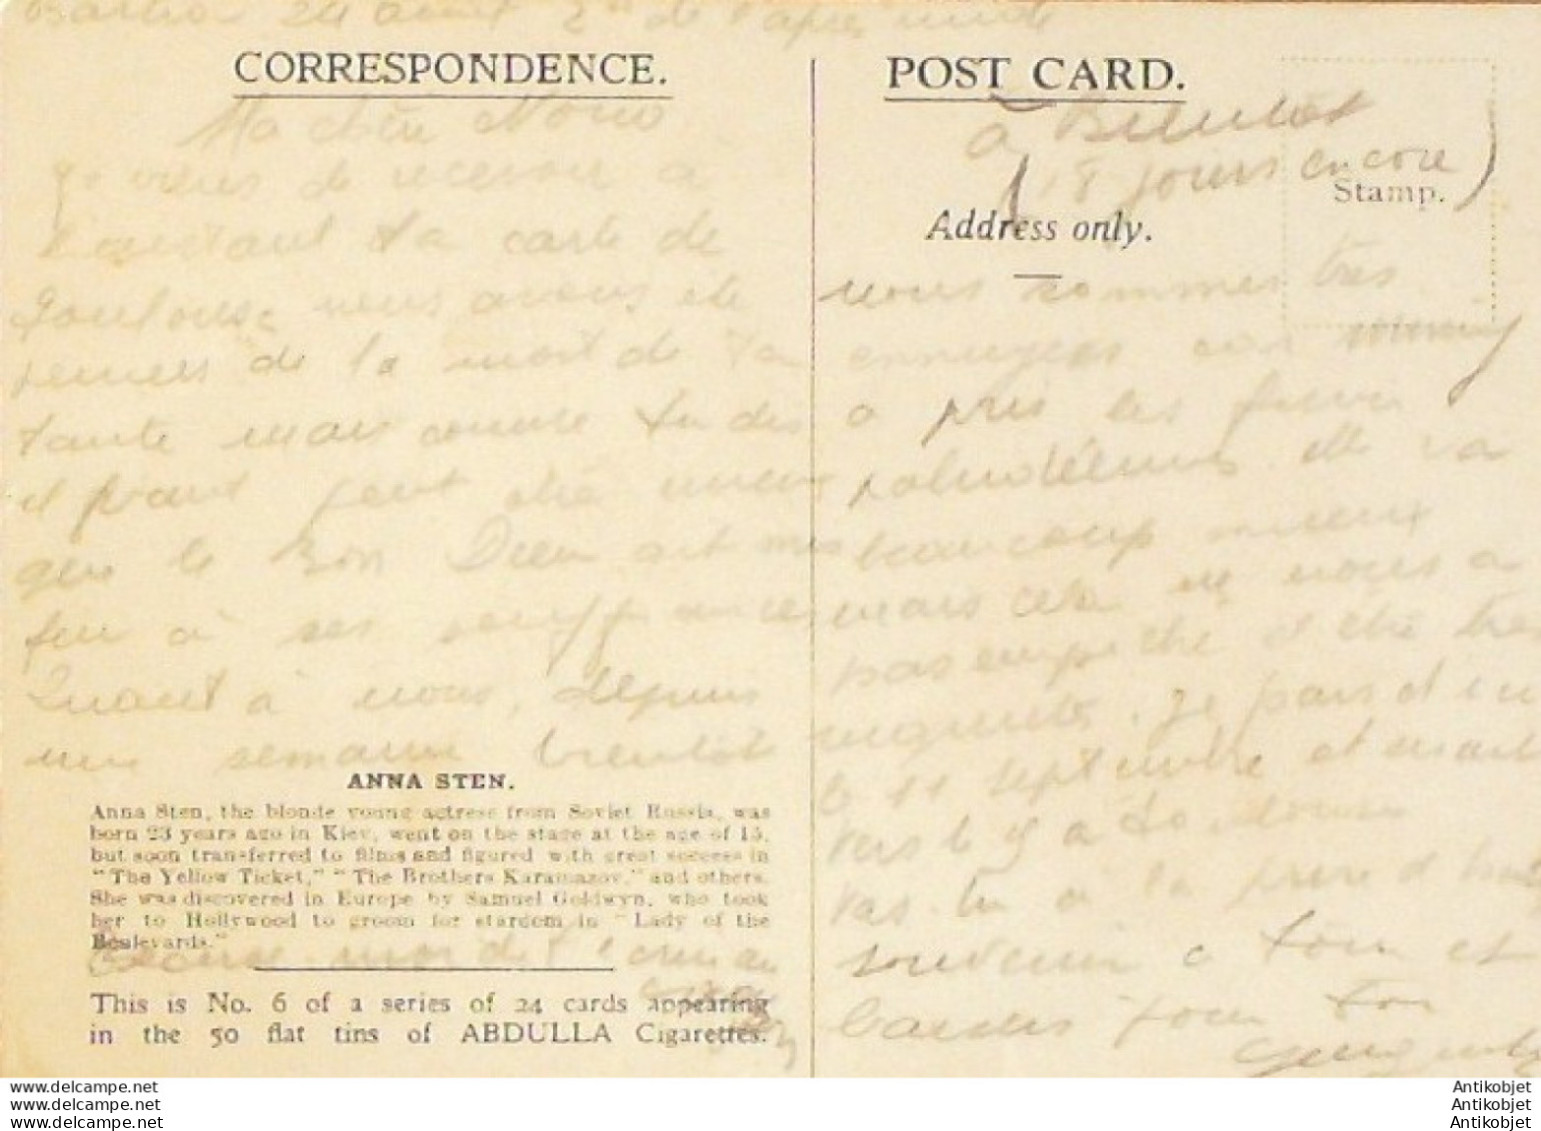 Bastia 24 août 2h de l'après midi
CORRESPONDENCE.
Ma chère Nono
Je viens de recevoir à
l'instant ta carte de
Toulouse, nous avons été
peinés de la mort de ta
tante mais comme tu dis
il vaut peut être mieux
que le Bon Dieu ait mis
fin à ses souffrances
Quant à nous, depuis
une semaine bientôt
ANNA STEN.
Anna Sten, the blonde young actress from Soviet Russia, was
born 23 years ago in Kiev, went on the stage at the age of 15,
but soon transferred to films and figured with great success in
"The Yellow Ticket," "The Brothers Karamazov," and others.
She was discovered in Europe by Samuel Goldwyn, who took
her to Hollywood to groom for stardom in "Lady of the
Boulevards."
Excuse moi de
This is No. 6 of a series of 24 cards appearing
in the 50 flat tins of ABDULLA Cigarettes.
POST CARD.
à Bientôt
(18 jours encore)
Stamp.
Address only.
nous sommes très
ennuyées car
a pris les fièvres
paludéennes elle va
beaucoup mieux
mais cela ne nous a
pas empêché d'être très
inquiètes. Je pars d'ici
le 11 septembre et
vers le
Vas-tu à la
souvenir à tous et
baisers pour toi
Antikobjet
Antikobjet
Antikobjet
www.delcampe.net
www.delcampe.net
www.delcampe.net